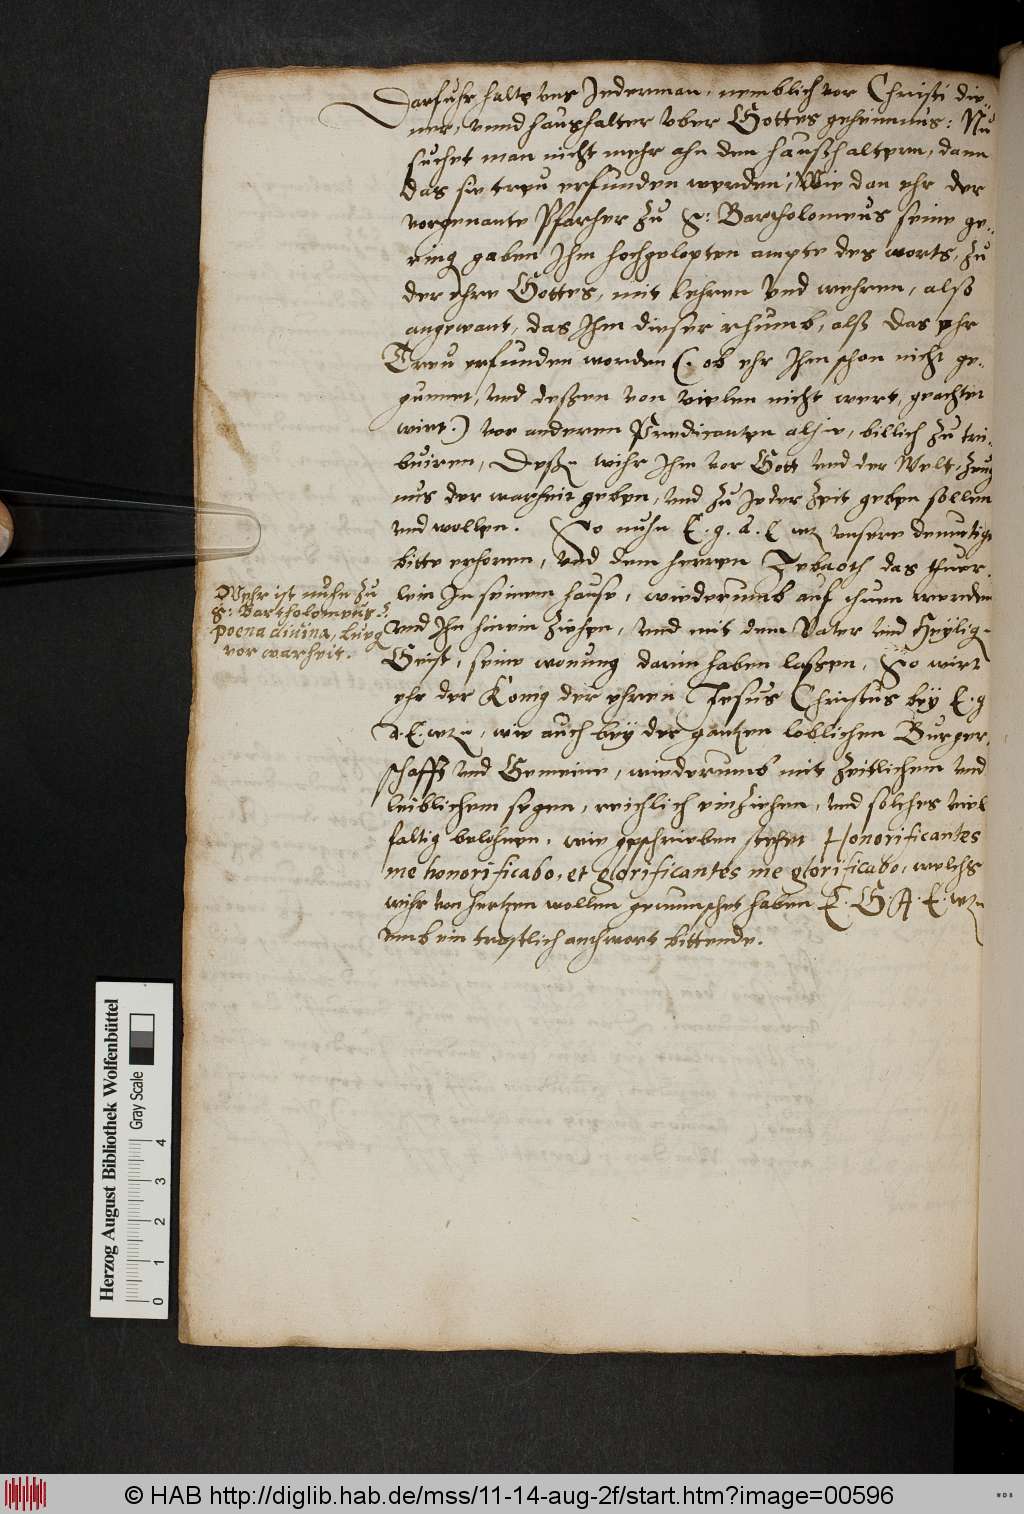 Darfuhr halte vns Jederman, nemblich vor Christi die-
ner, vnnd haushalter vber Gottes geheimnus: Nu
suchet man nicht mehr ahn den haußhaltern, dann
das sie treu erfunden werden, Wie dan ehr der
vorgenante Pfarher zu S: Bartholomeus seine ge-
ring gaben Ihm hochgelopten ampte des worts, zu
der ehre Gottes, mit lehren vnd wehren, also
angewant, das Ihm dieser rhumb, alß das ehr
Treu erfunden worden (. ob ehr Ihm schon nicht ge-
gunnet, vnd deßen von vielen nicht wert, geachtet
wirt.) vor anderen Predicanten alhie, billich zu tri-
buiren, Deße wihr Ihm vor Gott vnd der Welt, zeug
nus der warheit geben, vnd zu Jeder zeit geben sollen
vnd wollen. So nuhn E. g. A. E wz vnsere demutige
bitte erhoren, vnd dem herren Zebaoth das thuer-
lein In seinem hause, wiederumb auf thuen werden
vnd Ihn hinein ziehen, vnd mit dem Vater vnd Heylig-
Geist, seine wonung darin haben laßen, So wirt
ehr der Konig der ehren Jesus Christus bey E. g
A. E. wz, wie auch bey der gantzen loblichen Burger-
schafft vnd Gemeine, wiederumb mit zeitlichem vnd
leiblichem segen, reichlich einziehen, vnd solches viel
faltig belohnen, wie geschrieben stehet Honorificantes
me honorificabo, et glorificantes me glorificabo, welchs
wihr von hertzen wollen gewunschet haben E. G. A. E. wz
vmb ein trostlich anthwort bittende.
Wehr ist nuhn zu
S: Bartholomeus?
poena diuina, leug
vor warheit.
Herzog August Bibliothek Wolfenbüttel
Gray Scale
0 1 2 3 4
© HAB http://diglib.hab.de/mss/11-14-aug-2f/start.htm?image=00596
WDB